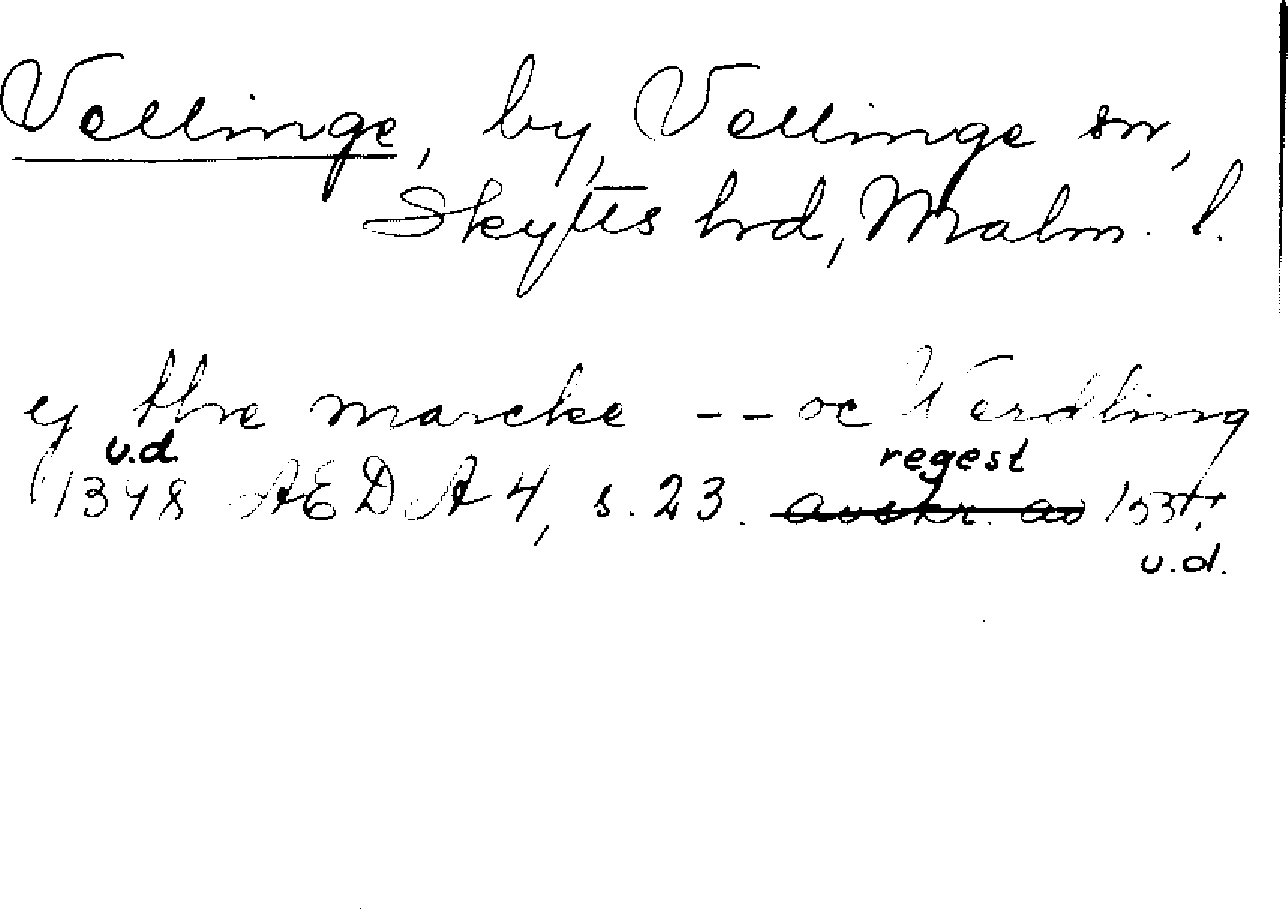 Vellinge, by, Vellinge sn,
Skytts hrd, Malm. l.
ey thre marcke -- oc Verdling
u.d. regest
1348 AEDA 4, s. 23. avskr. av
u.d.